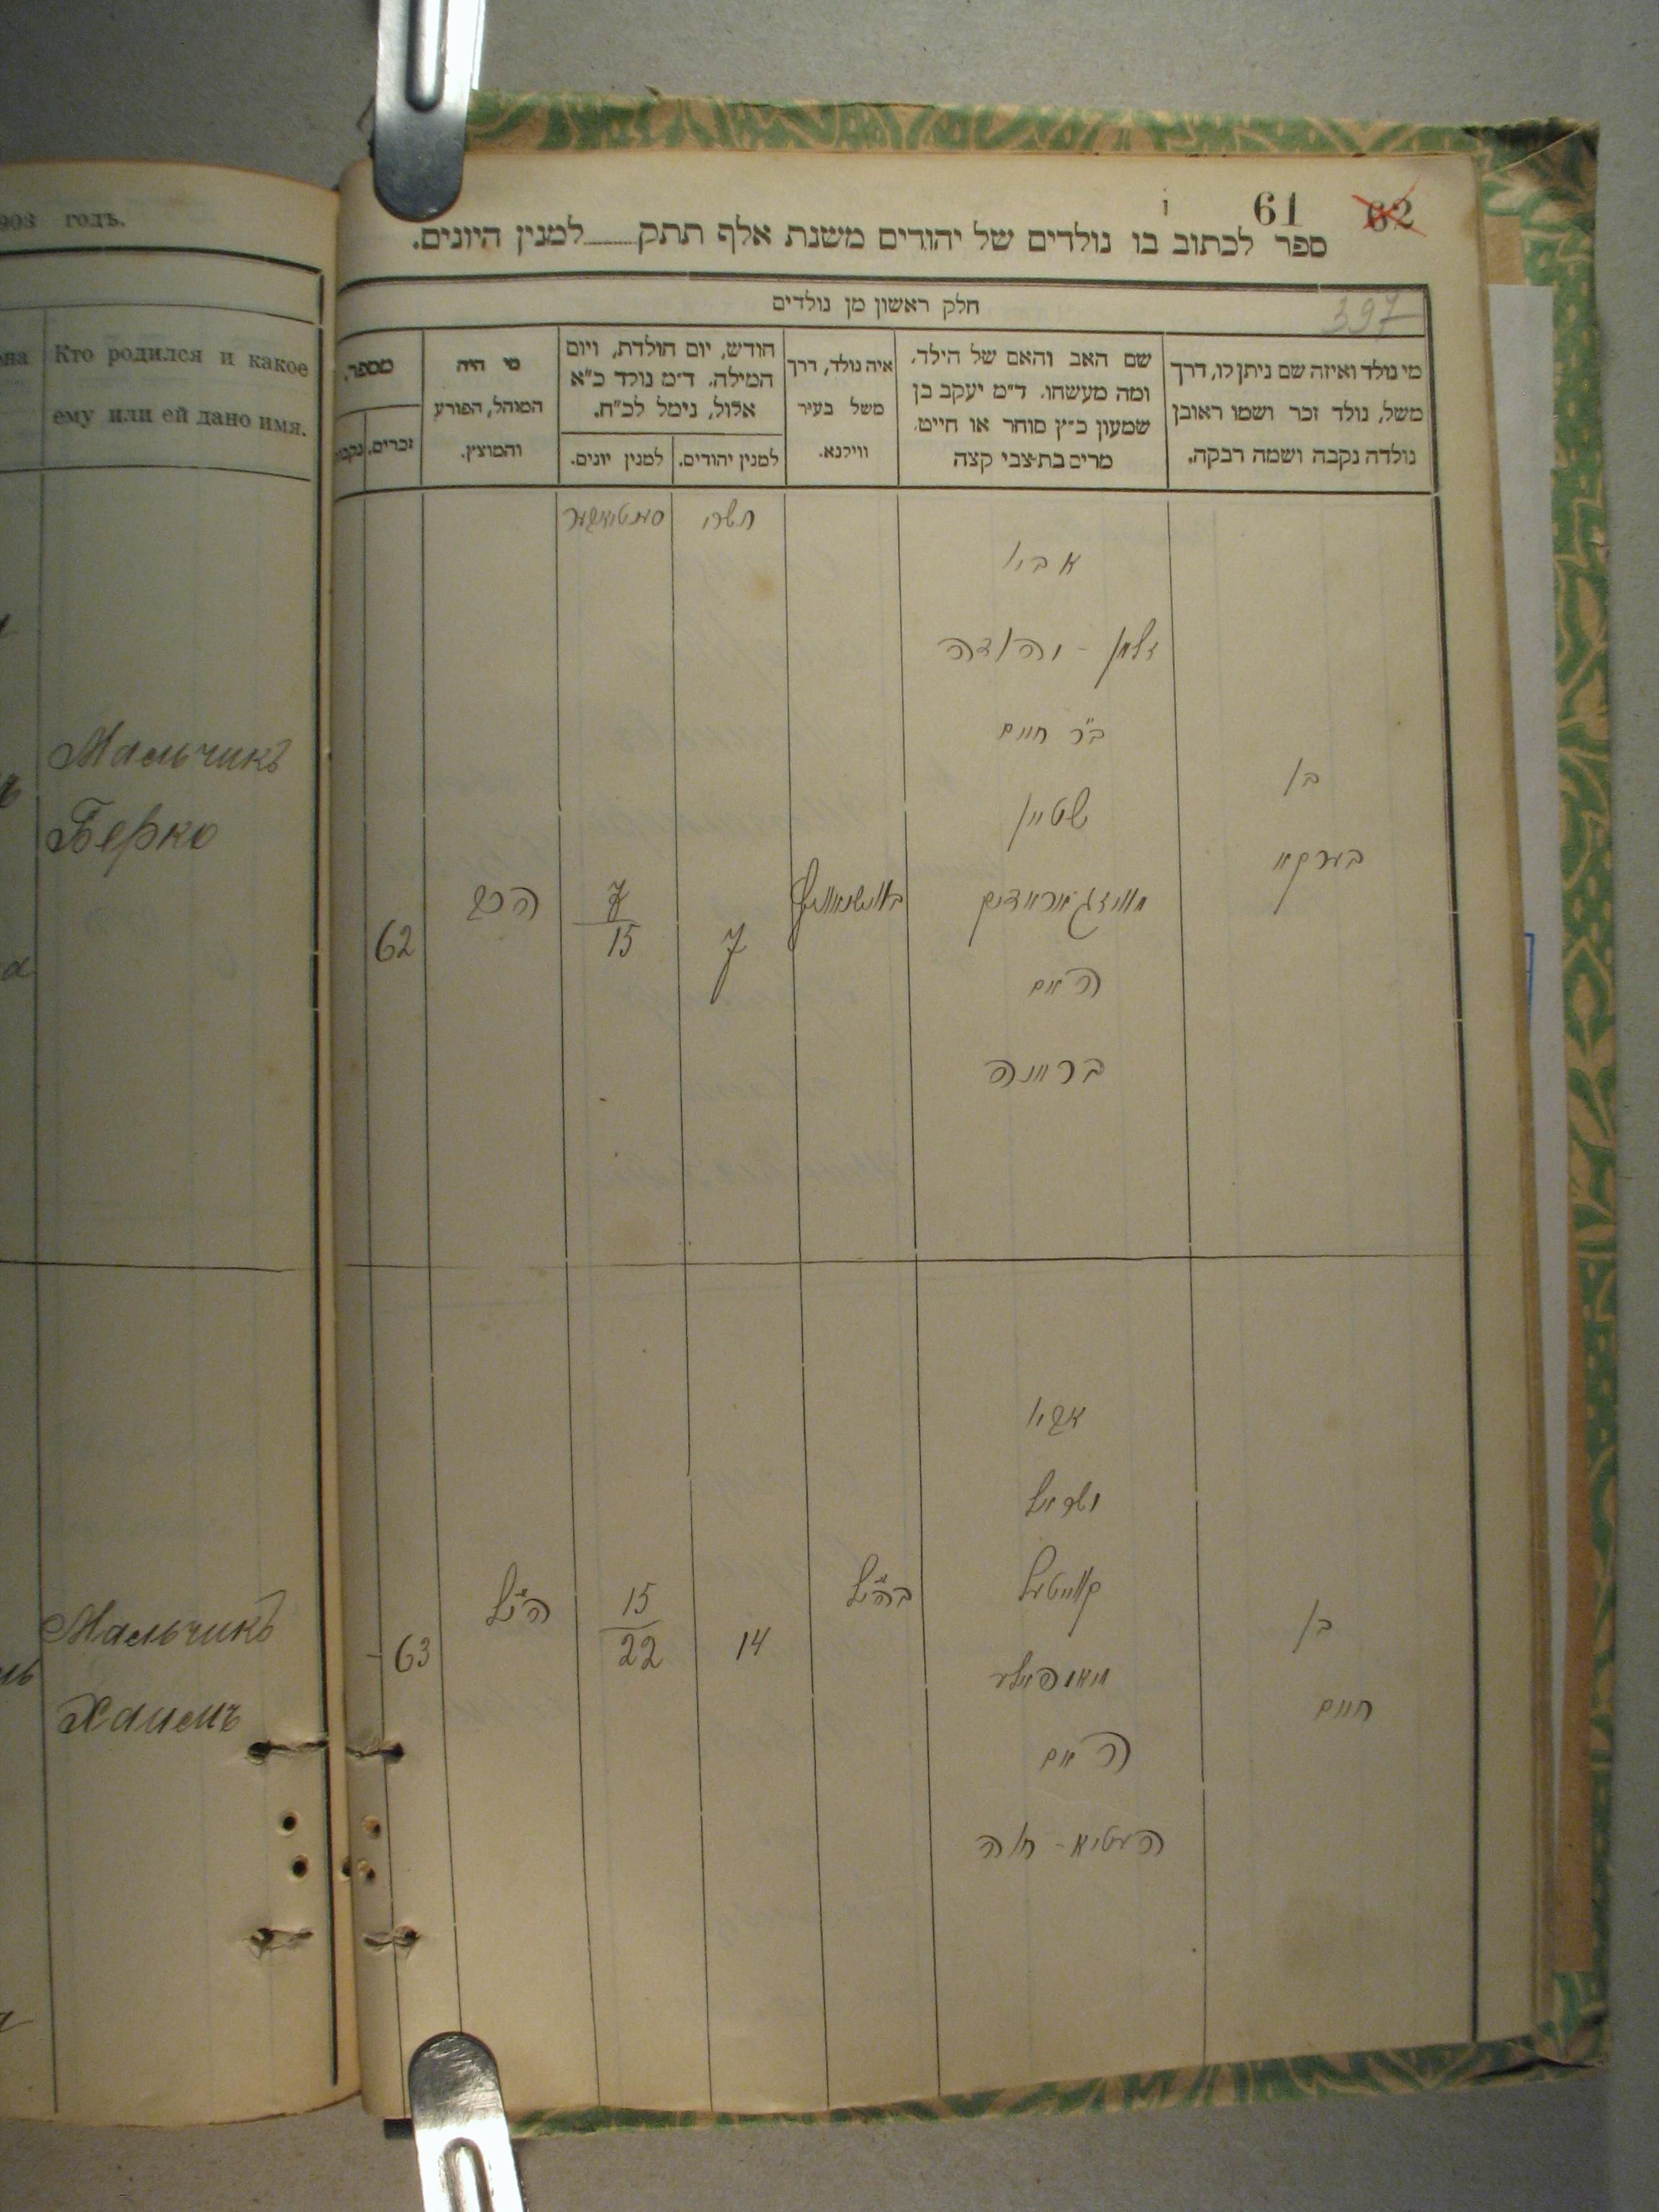 903 годъ.
Кто родился и какое
ему или ей дано имя.
Мальчикъ
Берко
Мальчикъ
Хаимъ
61 62
ספר לכתוב בו נולדים של יהודים משנת אלף תתק למנין היונים.
397
חלק ראשון מן נולדים
מי נולד ואיזה שם ניתן לו, דרך
משל, נולד זכר ושמו ראובן
נולדה נקבה ושמה רבקה.
שם האב והאם של הילד.
ומה מעשהו. ד״מ יעקב בן
שמעון כ״ץ סוחר או חייט.
מרים בת צבי קצה
איה נולד, דרך
משל בעיר
ווילנא.
חודש, יום הולדת, ויום
המילה. ד״מ נולד כ״א
אלול, נימל לכ״ח.
למנין יהודים.
למנין יונים.
מי היה
המוהל, הפורע
והמוצץ.
מספר.
זכרים.
תשרי
סעפטיאבער
אביו
זלמן - יהודה
ב״ר חיים
שטיין
האם
בן
בערקא
7
7
15
הרב
62
אביו
ישראל
האם
חיה
בן
חיים
בה״נל
14
15
22
ה״נל
63